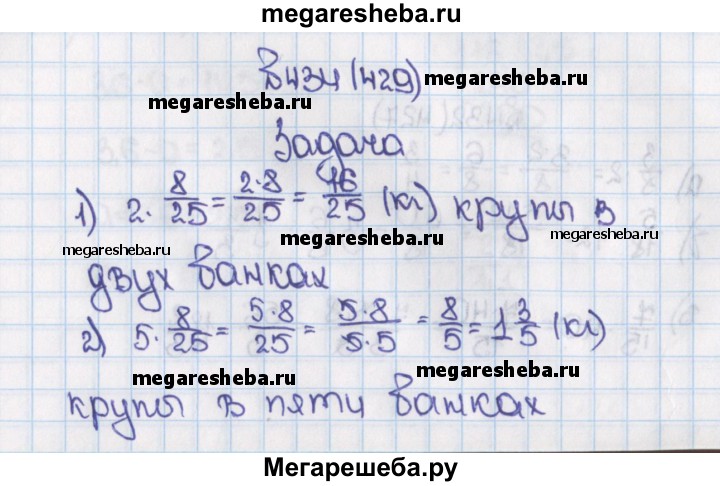 megaresheba.ru
В434 (429) megaresheba.ru
megaresheba.ru
Задача
1) 2·8/25 = 2·8/25 = 16/25 (кг) крупы в
megaresheba.ru megaresheba.ru megaresheba.ru
двух банках
2) 5·8/25 = 5·8/25 = 5·8/5·5 = 8/5 = 1 3/5 (кг)
megaresheba.ru megaresheba.ru
крупы в пяти банках
Мегарешеба.ру